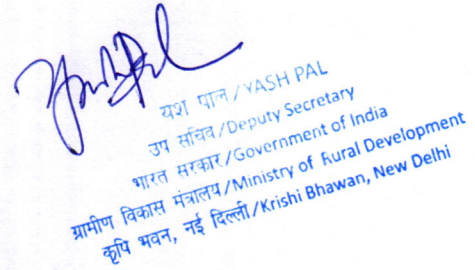 Yash Pal
यश पाल/YASH PAL
उप सचिव/Deputy Secretary
भारत सरकार/Government of India
ग्रामीण विकास मंत्रालय/Ministry of Rural Development
कृषि भवन, नई दिल्ली/Krishi Bhawan, New Delhi